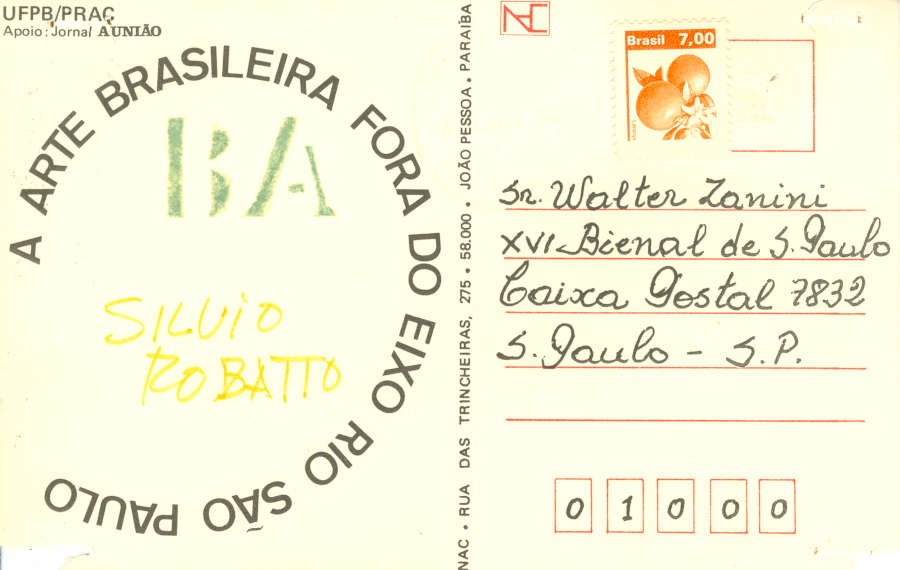 UFPB/PRAC
Apoio: Jornal A UNIÃO
A ARTE BRASILEIRA FORA DO EIXO RIO SÃO PAULO
BA
SILVIO
ROBATTO
NAC • RUA DAS TRINCHEIRAS, 275 • 58.000 • JOÃO PESSOA • PARAÍBA
NAC
Brasil 7,00
Laranja
Sr. Walter Zanini
XVI - Bienal de S. Paulo
Caixa Postal 7832
S. Paulo - S.P.
0 1 0 0 0